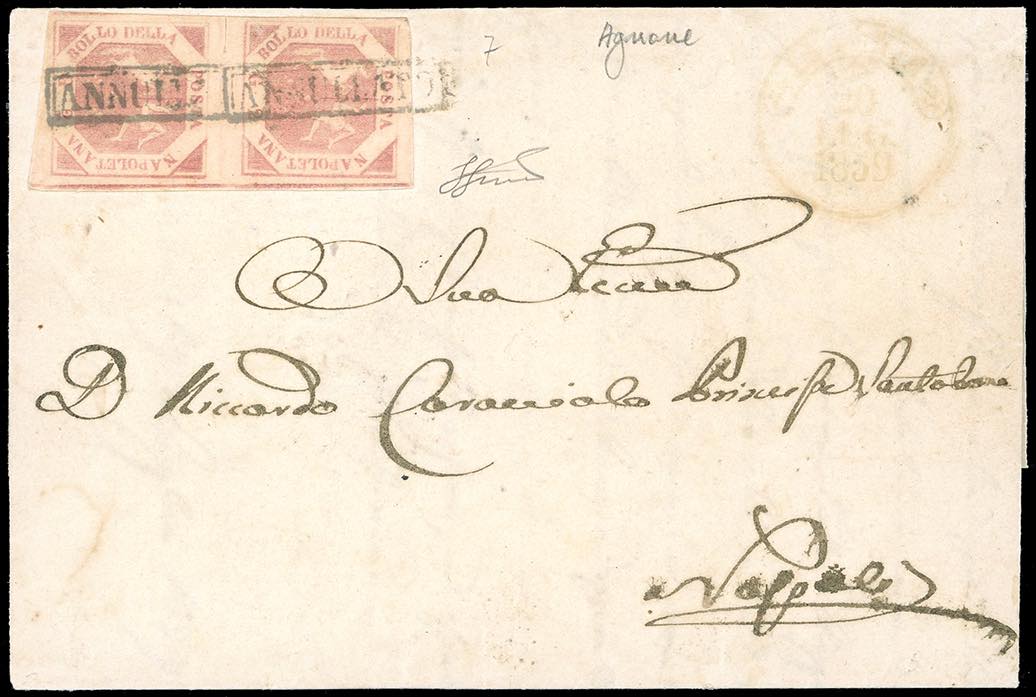 BOLLO DELLA POSTA NAPOLETANA
BOLLO DELLA POSTA NAPOLETANA
ANNULL
ANNULLATO
7
Agnone
Sua Eccell
D Riccardo Caracciolo Principe Santobono
Napoli